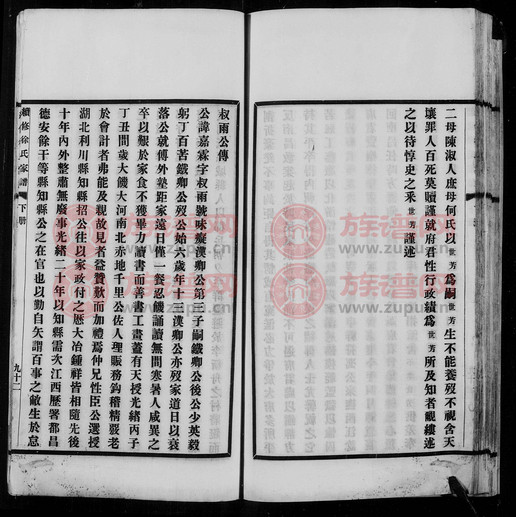 二母陳淑人庶母何氏以世芳爲嗣世芳生不能養歿不視含天
壤罪人百死莫贖謹就府君性行政績爲世芳所及知者覼縷述
之以待惇史之采世芳謹述
叔雨公傳
公諱嘉霖字叔雨號味癡漢卿公第三子嗣鐵卿公後公少英毅
躬丁百苦鐵卿公歿公始六歲年十三漢卿公亦歿家道日以衰
落公就傅外塾距家遠日僅一餐忍饑誦讀無間寒暑人咸異之
卒以艱於家食不獲畢力讀書而善書工畫蓋有天授光緒丙子
丁丑間歲大饑大河南北赤地千里公佐人理賑務鈎稽精覈老
於會計者弗能及親故見者益賛歎而加禮焉仲兄性臣公選授
湖北利川縣知縣招公往以家政付之歷大冶鍾祥皆相隨先後
十年內外整肅無廢事光緒二十年以知縣需次江西歷署都昌
德安餘干等縣知縣公之在官也以勤自矢謂百事之敝生於怠
續修徐氏家譜
下册
九十二
族谱网
www.zupu.cn
族谱网
www.zupu.cn